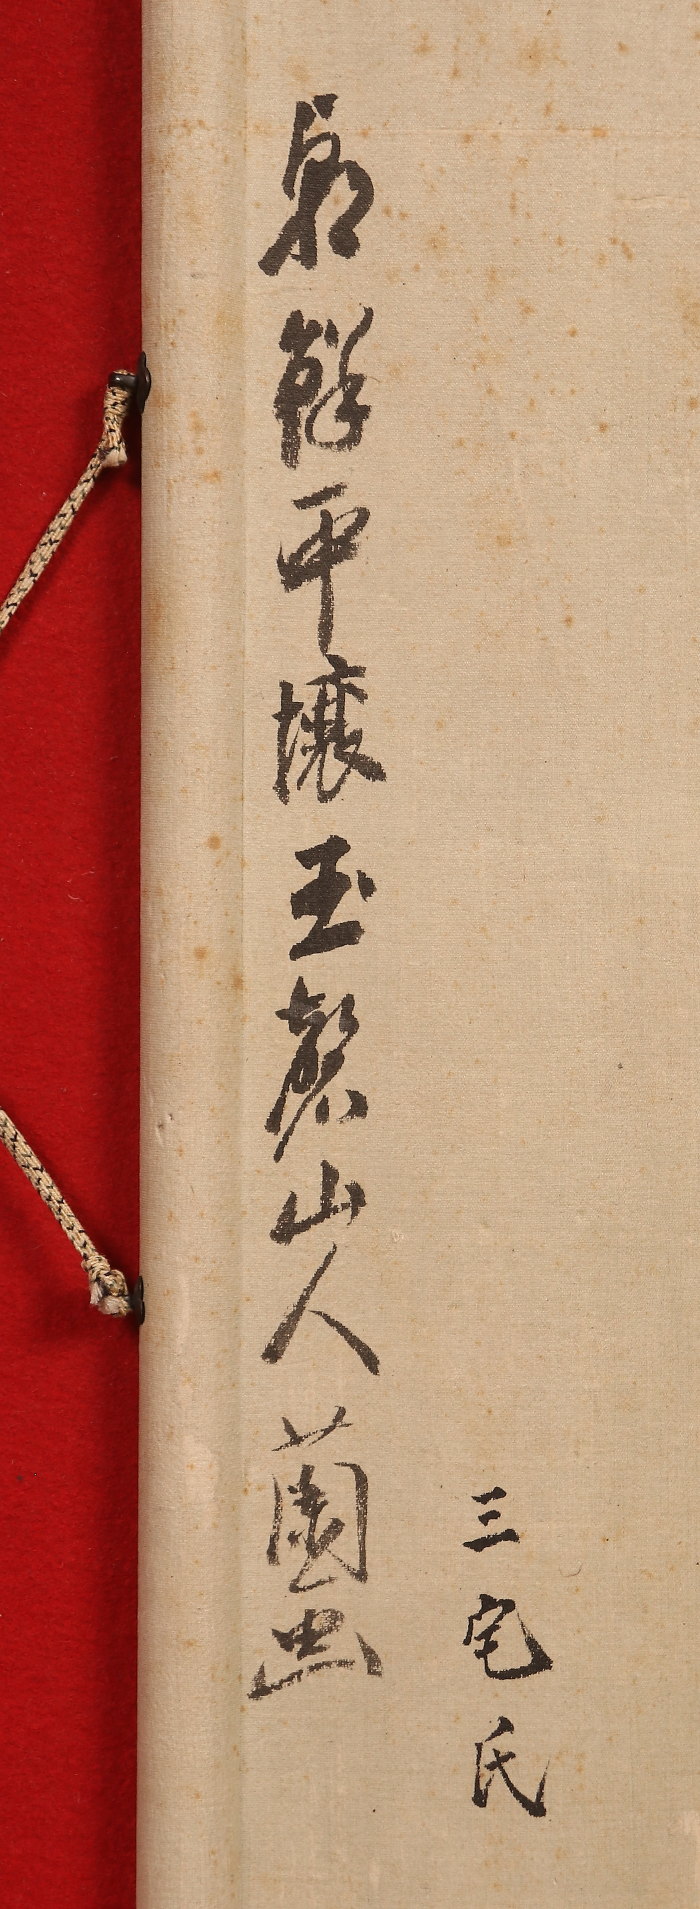 三宅氏
朝鮮平壤玉磬山人蘭画